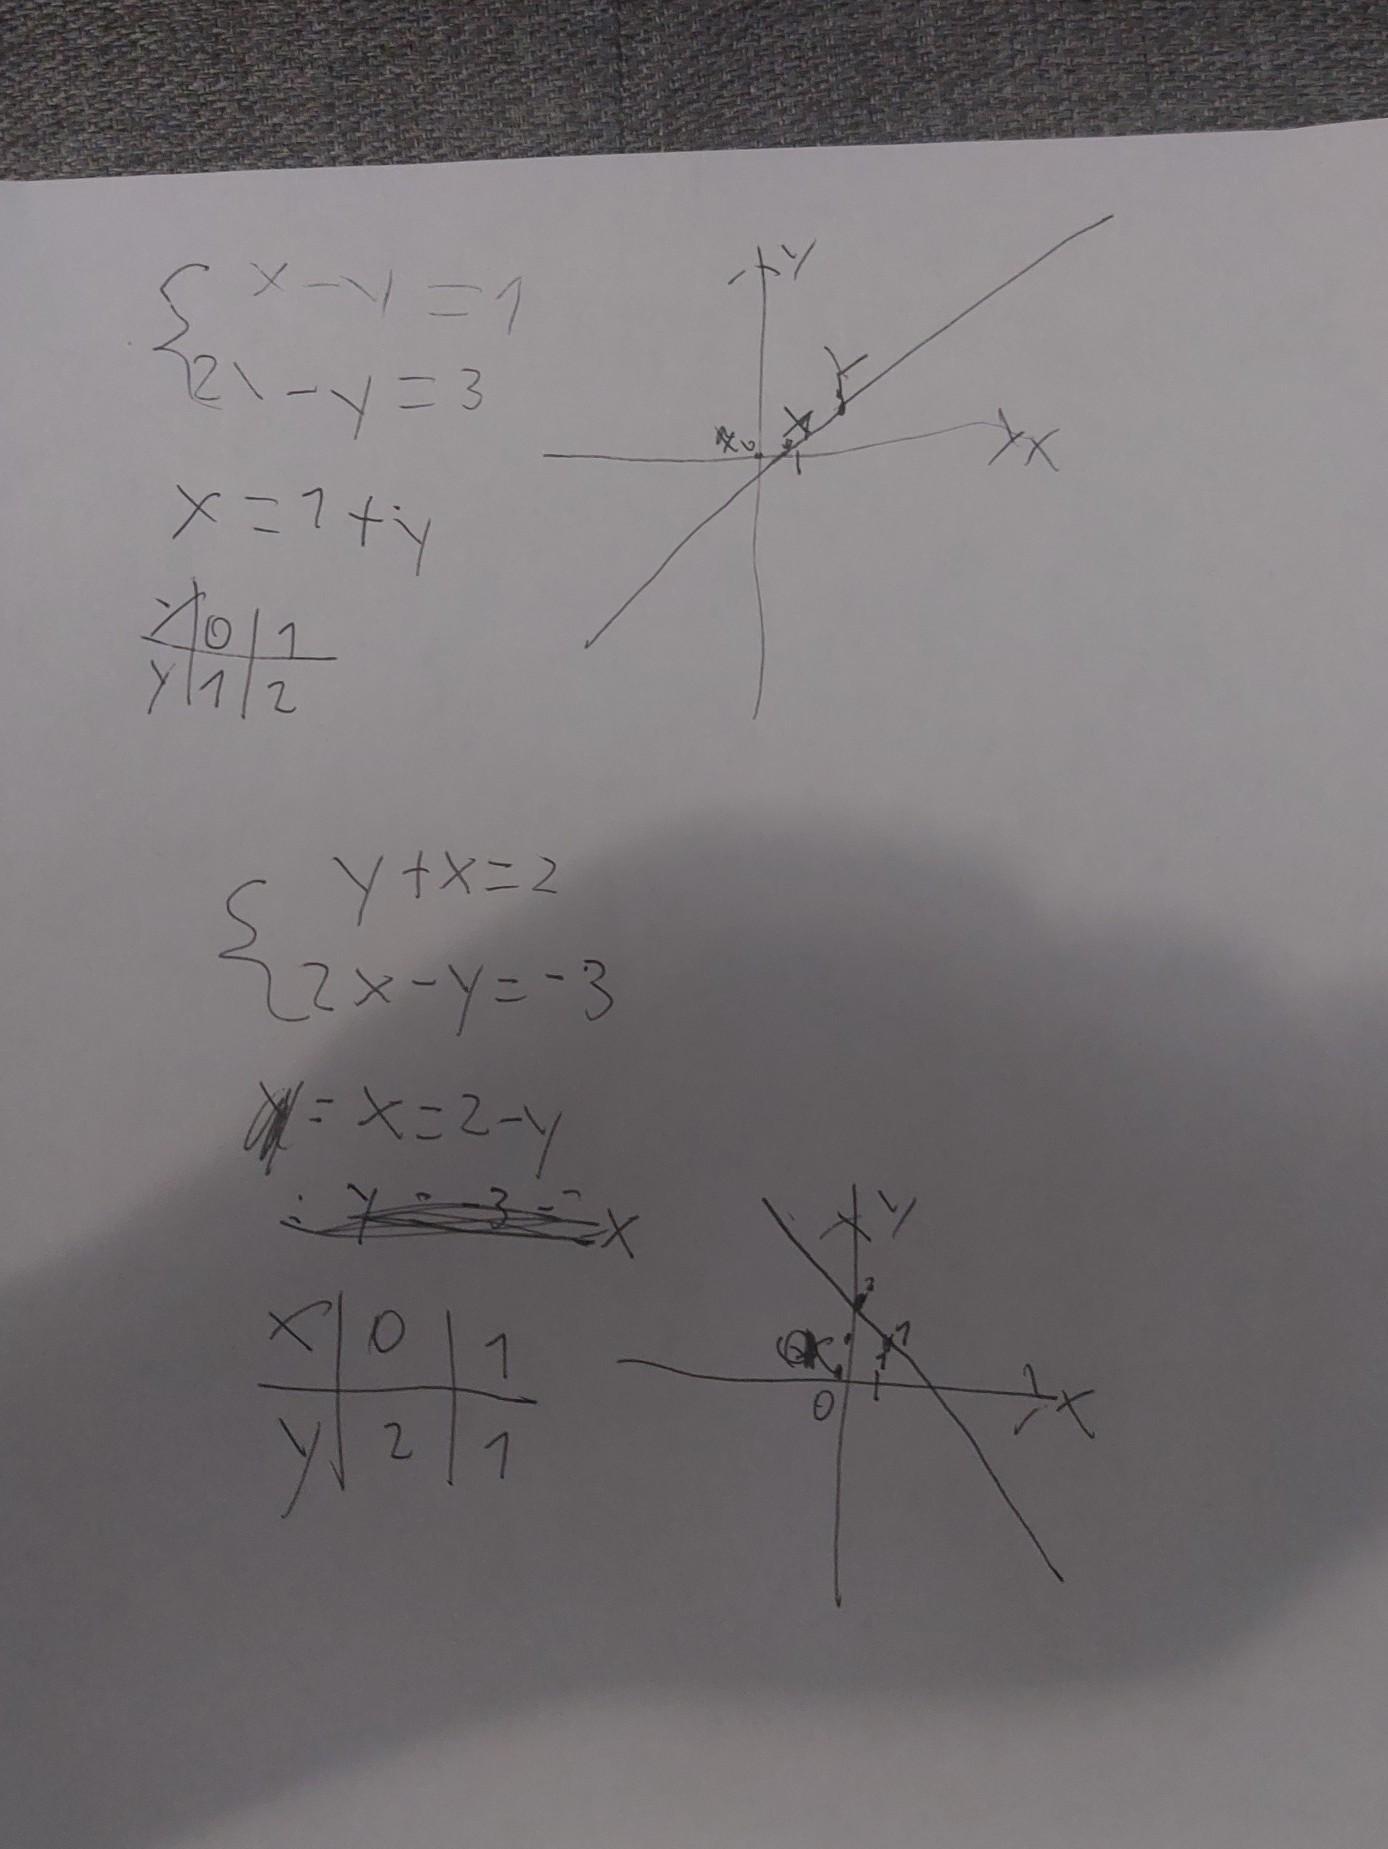 x-y=1
2x-y=3
x=1+y
0 1
y 1 2
y
x
1
0
y+x=2
2x-y=-3
= x=2-y
x
x 0 1
y 2 1
y
2
1
0
1
x